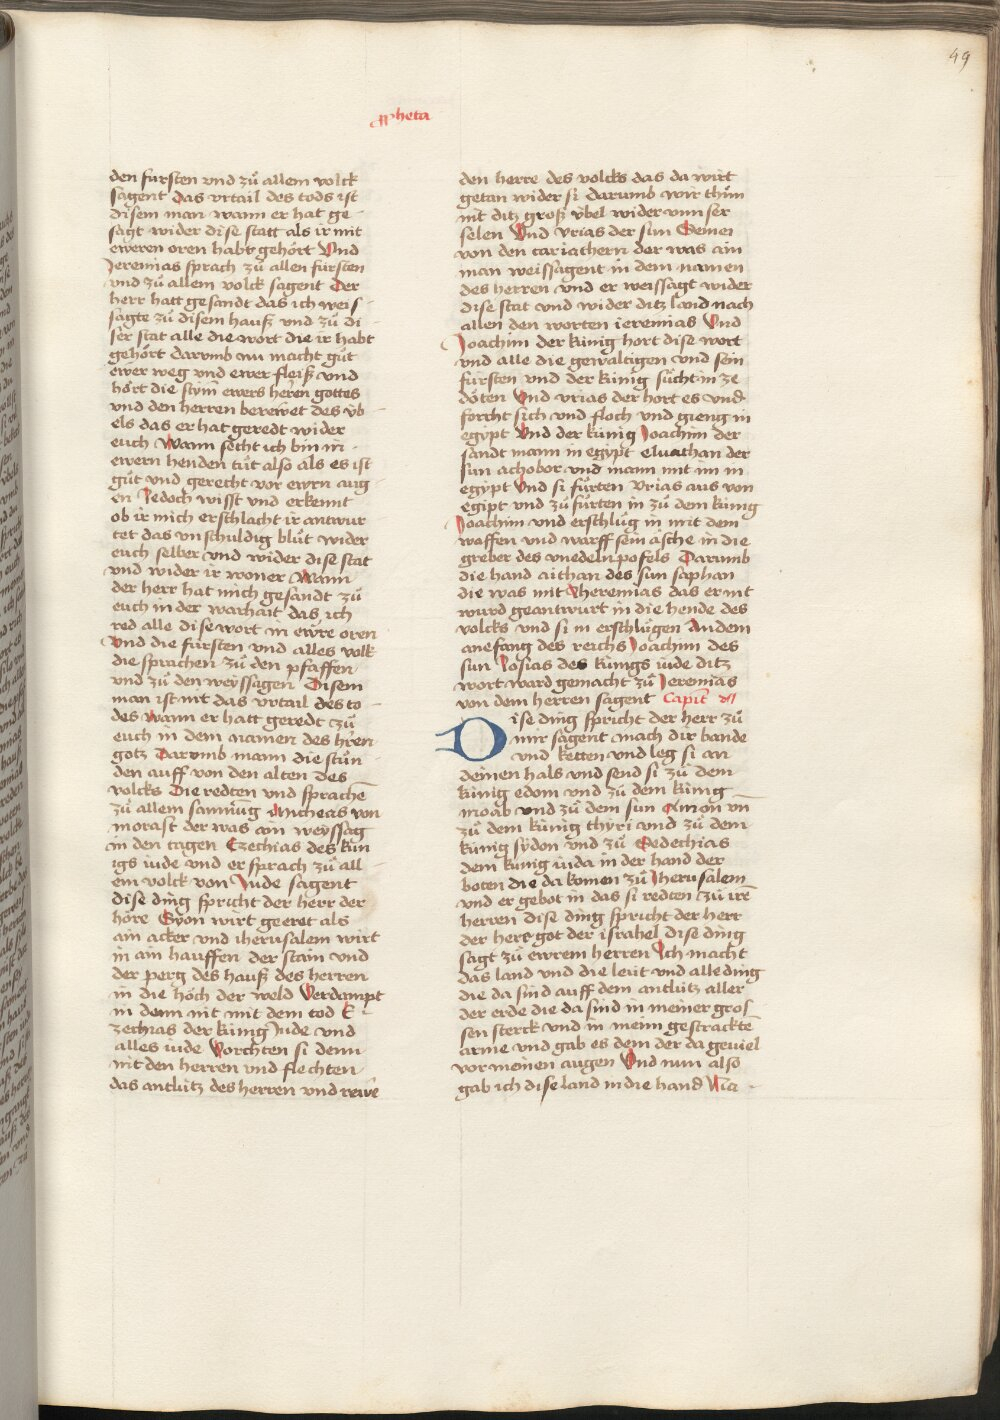 49
Ꝓheta
den fursten vnd zů allem volck
sagent Das vrtail des tods ist
disem man wann er hat ge-
sagt wider dise statt als ir mit
eweren oren habt gehört Vnd
Jeremias sprach zů allen fürsten
vnd zů allem volck sagent Der
herr hatt gesandt das ich weis-
sagte zů disem hauß vnd zů di-
ser stat alle die wort die ir habt
gehört darumb nu macht gůt
ewer weg vnd ewer fleiß vnd
hört die stym ewers heren gottes
vnd den herren berewet des vb-
els das er hat geredt wider
euch Wann secht ich bin in-
ewern henden tůt also als es ist
gůt vnd gerecht vor ewrn aug-
en Jedoch wisst vnd erkennt
ob ir mich erschlacht ir antwur
tet das vnschuldig blůt wider
euch selber vnd wider dise stat
vnd wider ir woner Wann
der herr hat mich gesandt zů
euch in der warhait das ich
red alle dise wort in ewre oren
Vnd die fürsten vnd alles volk
die sprachen zů den pfaffen
vnd zů den weyssagen Disem
man ist nit das vrtail des to-
des wann er hatt geredt zů
euch in dem namen des hren
gotz Darumb mann die stůn-
den auff von den alten des
volcks Die redten vnd sprachē
zů allem samnūg Micheas von
morast der was ain weyssag
in den tagen Ezechias des kün
igs iude vnd er sprach zů all-
em volck von Jude sagent
dise ding spricht der herr der
höre Syon wirt geeret als
ain acker vnd iherusalem wirt
in ain hauffen der stain vnd
der perg des hauß des herren
in die höch der weld Verdampt
in denn nit mit dem tod E-
zechias der künig Jude vnd
alles iude Vorchten si denn
nit den herren vnd flechten
das antlütz des herren vnd rewe
den herre des volcks das da wirt
getan wider si darumb wir thůn
nit ditz groß vbel wider vnnser
selen Vnd vrias der sun Semei
von den cariathern der was ain
man weissagent in dem namen
des herren vnd er weissagt wider
dise stat vnd wider ditz land nach
allen den worten ieremias Vnd
Joachim der künig hort dise wort
vnd alle die gewaltigen vnd sein
fürsten vnd der künig sůcht in ze
döten Vnd vrias der hort es vnd
forcht sich vnd floch vnd gieng in
egÿpt Vnd der künig Joachim der
sandt mann in egÿpt eluathan der
sun achobor vnd mann mit im in
egÿpt Vnd si fürten vrias aus von
egipt vnd zů fürten in zů dem künig
Joachim vnd erschlůg in mit dem
waffen vnd warff sein äsche in die
greber des vnedeln pofels Darumb
die hand aithan des sun saphan
die was mit Jheremias das er nit
wurd geantwurt in die hende des
volcks vnd si in erschlügen An dem
anefang des reichs Joachim des
sun Josias des künigs iude ditz
wort ward gemacht zů Jeremias
von dem herren sagent Capit
Dise ding spricht der herr zů
mir sagent mach dir bande
vnd ketten vnd leg si an
deinen hals vnd send si zů dem
künig edom vnd zů dem künig
moab vnd zů dem sun Amon vn̄
zů dem künig thÿri vnd zů dem
künig sÿdon vnd zů Sedechias
dem künig iuda in der hand der
boten die da komen zů Jherusalem
vnd er gebot in das si redten zů irē
herren dise ding spricht der herr
der herr got der israhel dise ding
sagt zů ewrem herren Ich macht
das land vnd die leüt vnd alle ding
die da sind auff dem antlütz aller
der erde die da sind in meiner gros-
sen sterck vnd in meim gestrackte̅
arme vnd gab es dem der da geviel
vor meinen augen Vnd nun also
gab ich dise land in die hand Na-